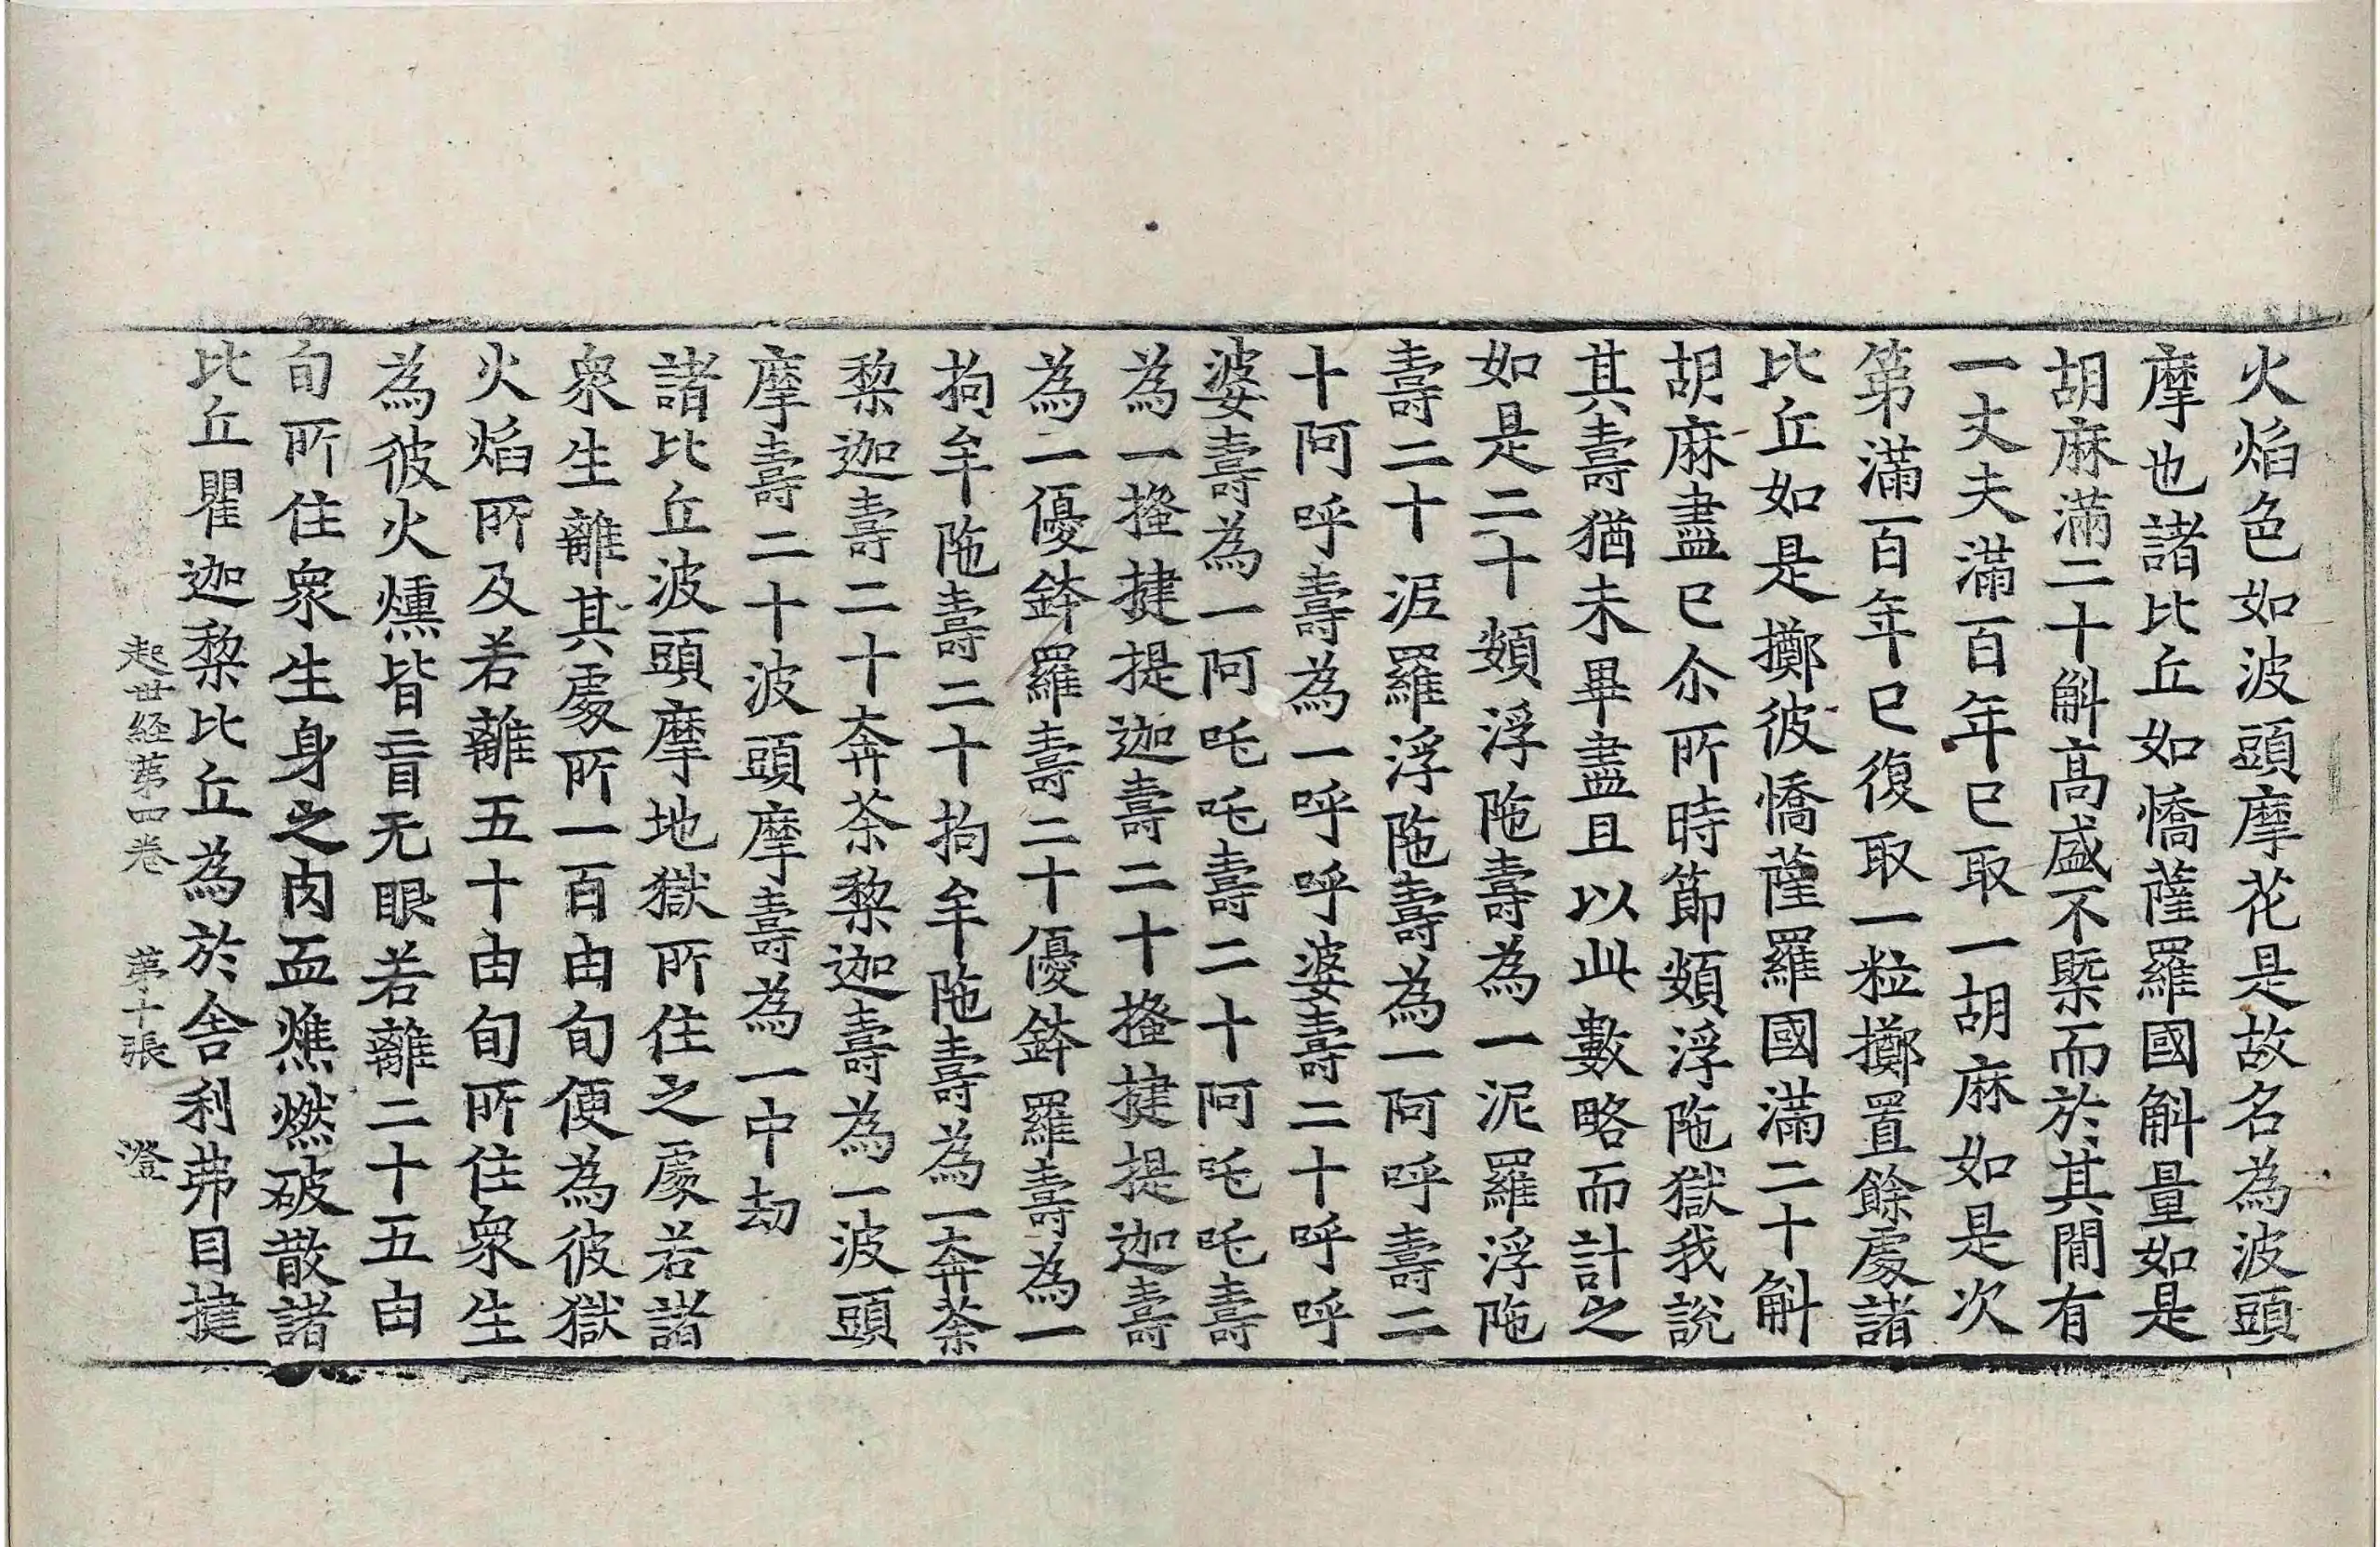 火焰色如波頭摩花是故名為波頭
摩也諸比丘如憍薩羅國斛量如是
胡麻滿二十斛高盛不槩而於其閒有
一丈夫滿百年已取一胡麻如是次
第滿百年已復取一粒擲置餘處諸
比丘如是擲彼憍薩羅國滿二十斛
胡麻盡已尒所時節頞浮陁獄我說
其壽猶未畢盡且以此數略而計之
如是二十頞浮陁壽為一泥羅浮陁
壽二十泥羅浮陁壽為一阿呼壽二
十阿呼壽為一呼呼婆壽二十呼呼
婆壽為一阿吒吒壽二十阿吒吒壽
為一搔揵提迦壽二十搔揵提迦壽
為一優鉢羅壽二十優鉢羅壽為一
拘牟陁壽二十拘牟陁壽為一奔荼
黎迦壽二十奔荼黎迦壽為一波頭
摩壽二十波頭摩壽為一中劫
諸比丘波頭摩地獄所住之處若諸
衆生離其處所一百由旬便為彼獄
火焰所及若離五十由旬所住衆生
為彼火燻皆盲无眼若離二十五由
旬所住衆生身之肉血燋燃破散諸
比丘瞿迦黎比丘為於舍利弗目揵
起世経第四卷 第十張 澄